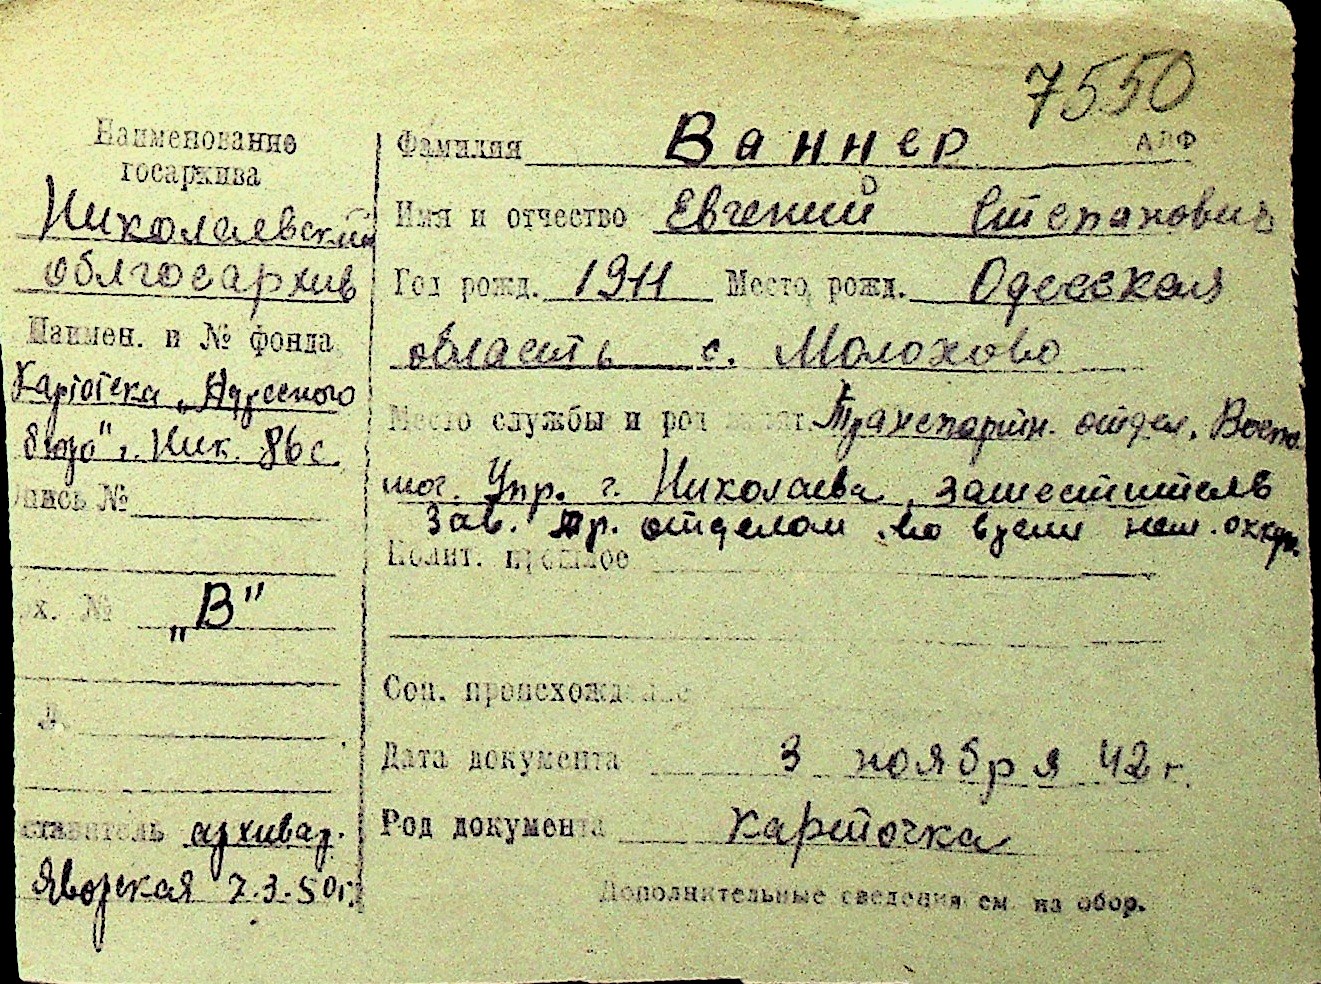 7550
Наименование
госархива
Николаевский
облгосархив
Наимен. и № фонда
Картотека „Адресного
бюро" г. Ник. 86 с.
Опись №
„В"
архивар.
Яворская 7.3.50г.
Фамилия Ваннер
Имя и отчество Евгений Степанович
Год рожд. 1911 Место рожд. Одесская
область с. Молохово
Место службы и род Транспортн. отдел,
Упр. г. Николаева, заместитель
Зав. тр. отделом во время нем. оккуп.
Полит. прошлое
Соц. происхождение
Дата документа 3 ноября 42 г.
Род документа карточка
Дополнительные сведения см. на обор.